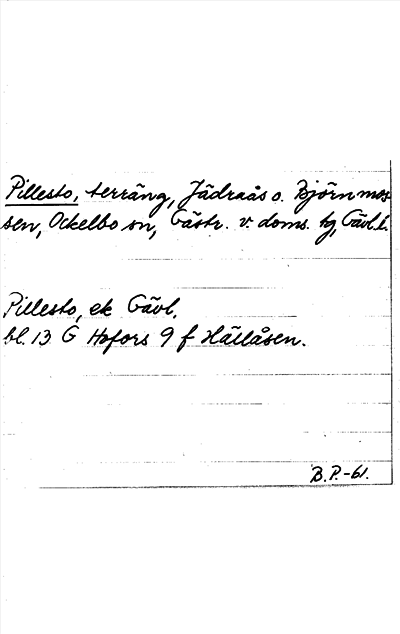 Pillesto, terräng, Jädraås o. Björnmos
sen, Ockelbo sn, Gästr. v. doms. tg, Gävl. l.
Pillesto, ek Gävl.
bl. 13 G Hofors 9 f Hällåsen.
B.P.-61.